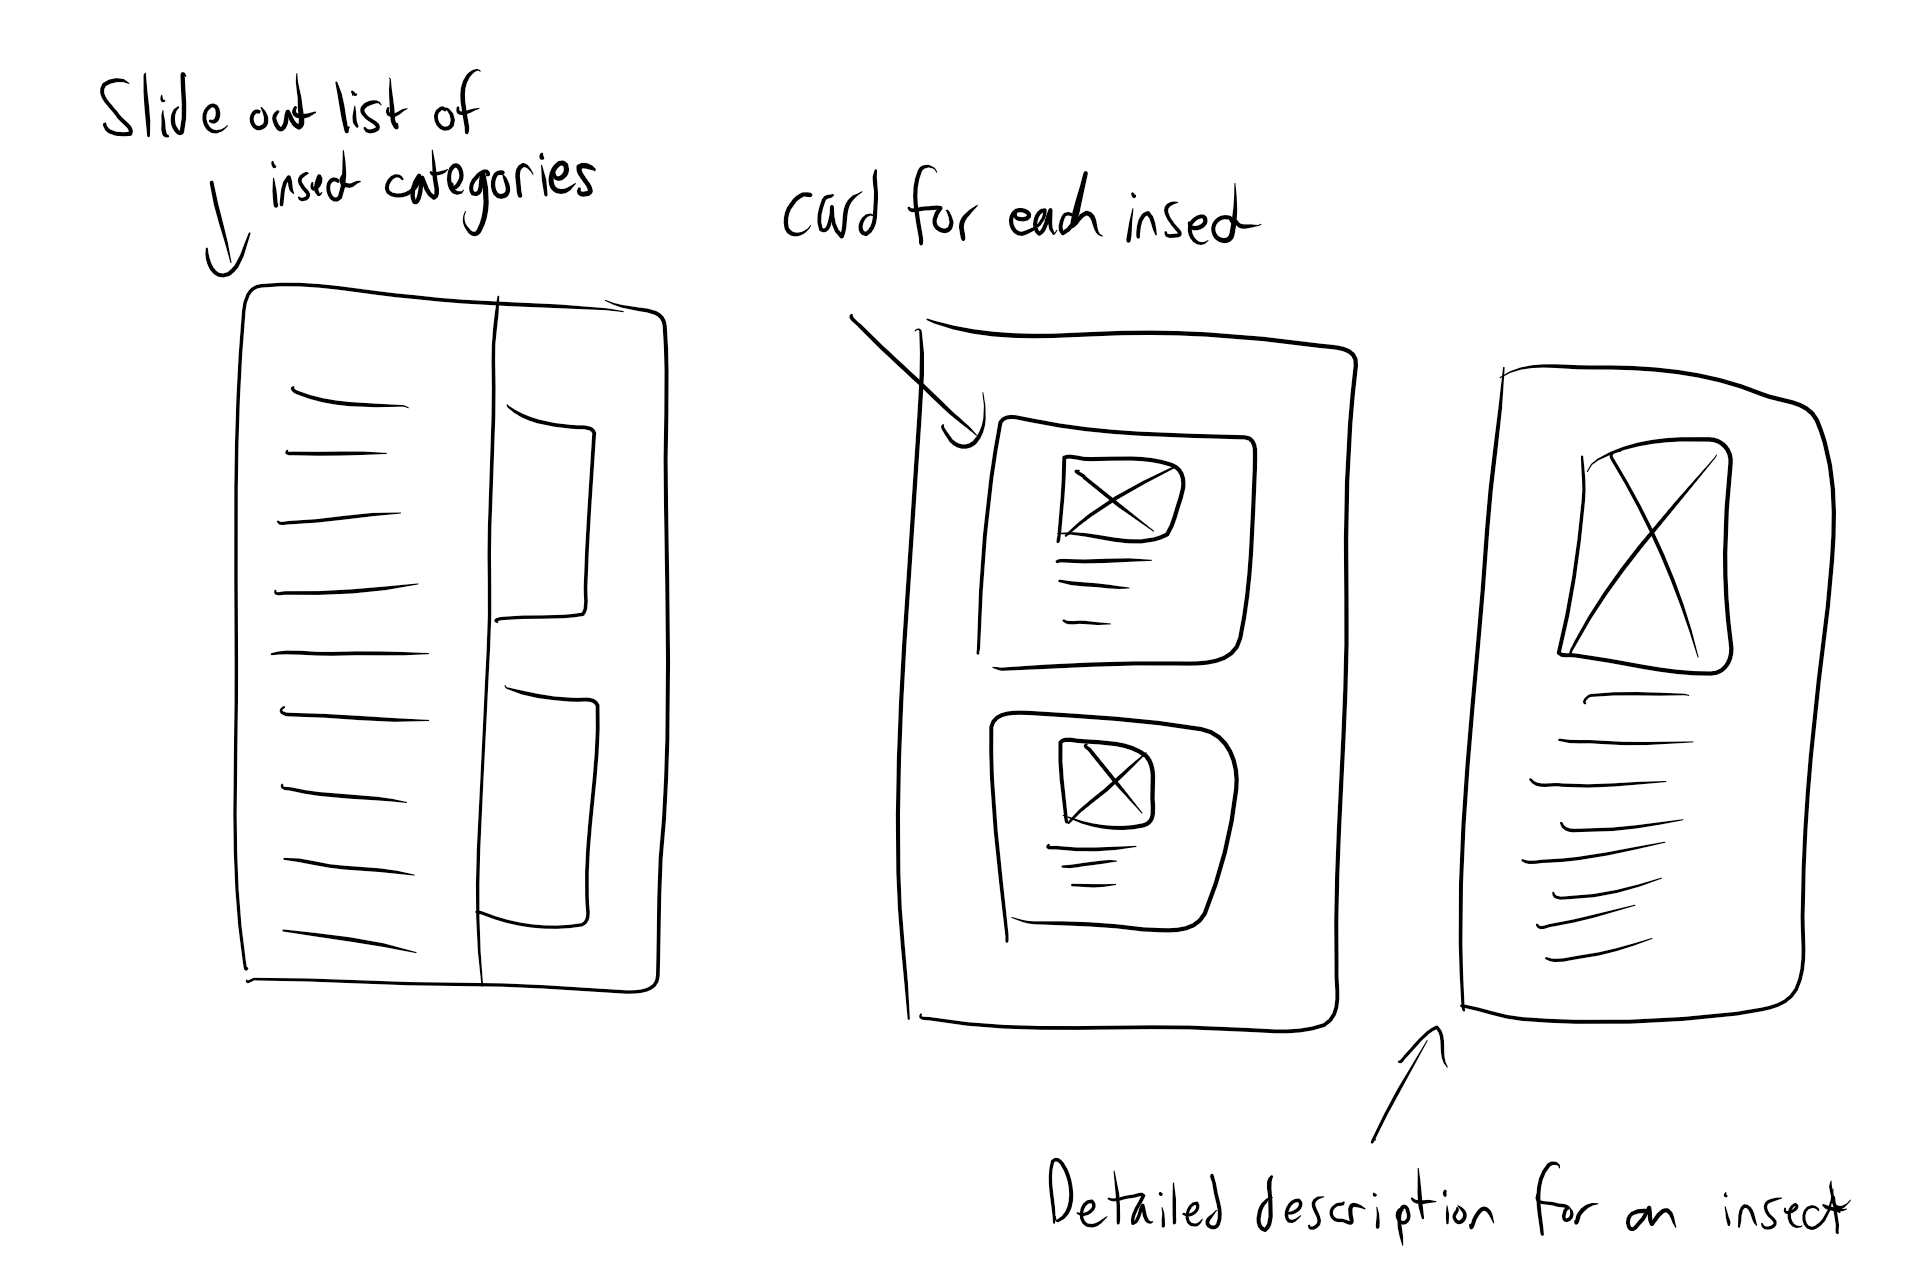 Slide out list of
insect categories
card for each insect
Detailed description for an insect